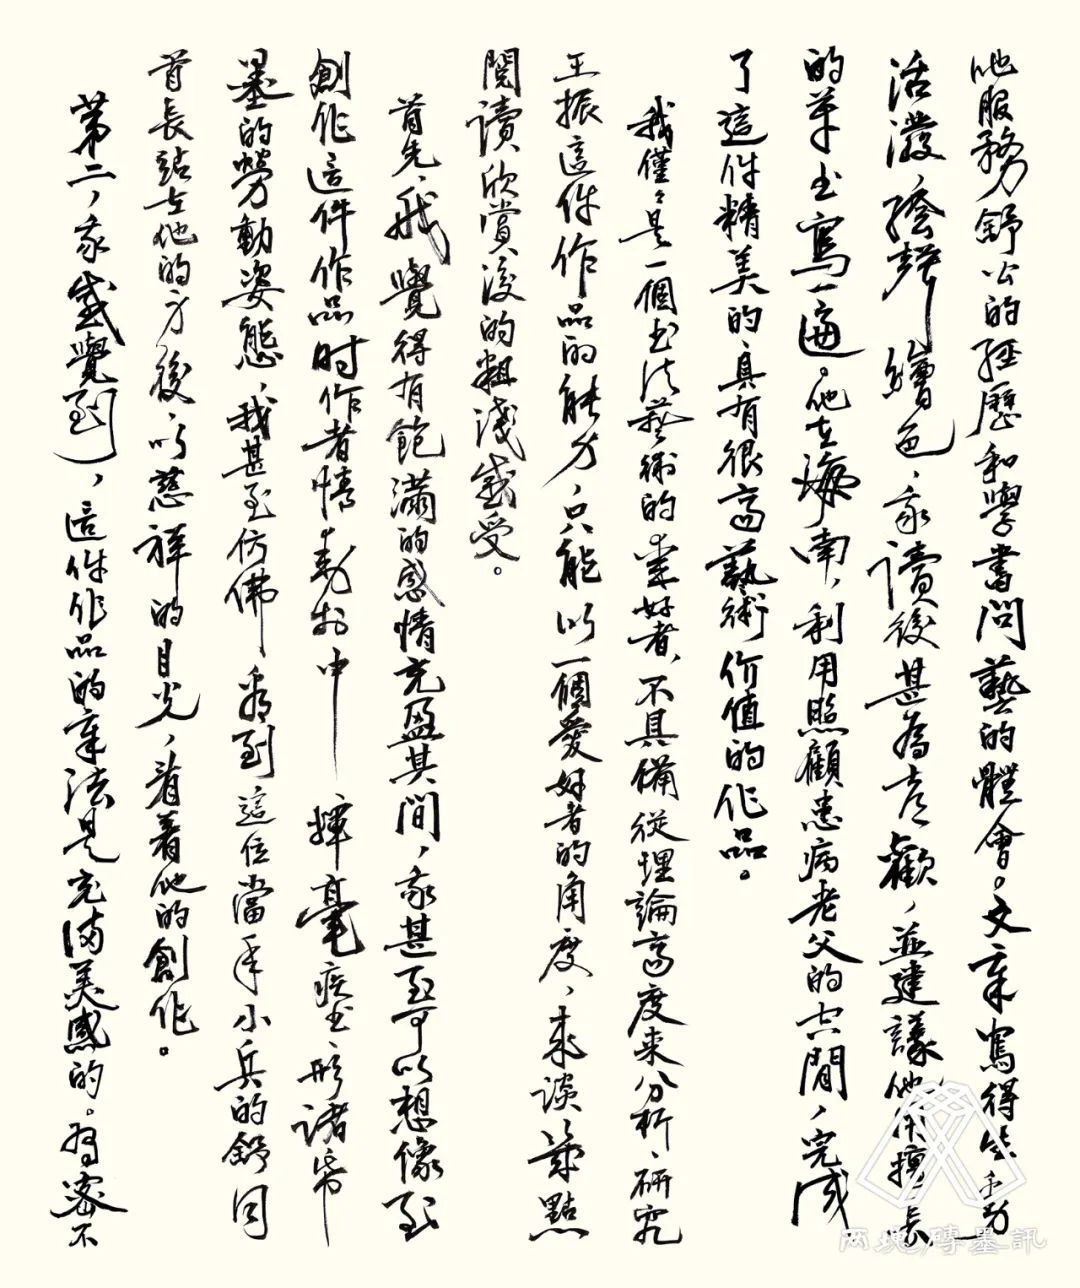 他服務舒公的經歷和學書問藝的體會。文章寫得生動
活潑，繪聲繪色，我讀後甚為喜歡，並建議他用擅長
的草书寫一遍。他在海南，利用照顧患病老父的空閒，完成
了這件精美的具有很高藝術价值的作品。
我僅々是一個书法藝術的愛好者，不具備從理論高度來分析、研究
王振這件作品的能力，只能以一個愛好者的角度，來談幾點
閱讀欣賞後的粗淺感受。
首先，我覺得有飽滿的感情充盈其間，我甚至可以想像到
創作這件作品时作者情動於中——揮毫疾书形諸帋
墨的勞動姿態，我甚至仿佛看到這位當年小兵的舒同
首長站在他的身後，以慈祥的目光，看着他的創作。
第二，我感覺到，這件作品的章法是充滿美感的。密不
两塊磚墨訊